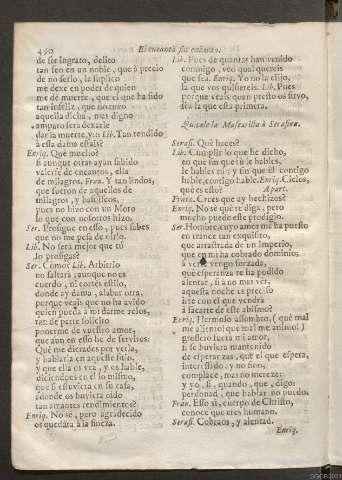 490 El encanto sin encanto.
de ser ingrato, delito
tan feo en un noble, que à precio
de no serlo, la suplico
me dexe en poder de quien
me dè muerte, que el que ha sido
tan infeliz, que no tuvo
aquella dicha, mas digno
amparo serà dexarle
dar la muerte, y
Lib. Tan tendido
à esta dama estais?
Enriq. Què mucho?
si aunque otras ayan sabido
valerse de encantos, ella
de milagros. Fran. Y tan lindos,
que fueron de aquellos de
milagros, y basiliscos,
pues no hizo con un Moro
lo que con nosotros hizo.
Ser. Prosigue en esso, pues sabes
que no me pesa de oirlo.
Lib. No serà mejor que tù
lo prosigas?
Ser. Como? Lib. Arbitrio
no faltarà, aunque no es
cuerdo, ni cortès estilo,
donde ay dama, alabar otra,
porque veais que no ha avido
quien pueda à mi darme zelos,
de parte solicito
ponerme de vuestro amor,
que aun en esso he de serviros.
Què me dierades por verla,
y hablarla en aqueste sitio,
y que ella os vea, y os hable,
diciendoos en èl lo mismo,
que si estuviera en su casa,
adonde os huviera oido
tan amantes rendimientos?
Enriq. No sè, pero agradecido
os quedàra à la fineza.
Lib. Pues de quantas han venido
conmigo, ved qual quereis
que sea. Enriq. Yo no la elijo,
la que vos quisiereis. Lib. Pues
porque veais quan presto os sirvo,
sea la que està primera.
Quitale la Mascarilla à Serafina.
Seraf. Què haces?
Lib. Cumplir lo que he dicho,
en que sin que tù le hables,
le hables tù; y sin que èl contigo
hable, contigo hable. Enriq. Cielos,
què es esto? Apart.
Franc. Crees que ay hechizos?
Enriq. No sè què te diga, pero
mucho puede este prodigio.
Ser. Hombre, cuyo amor me ha puesto
en trance tan exquisito,
que arrastrada de un Imperio,
que en mi ha cobrado dominio,
à verte vengo forzada,
què esperanza te ha podido
alentar, si à no mas ver,
aquesta noche es preciso
irte con el que vendrà
à sacarte de este abismo?
Enriq. Hermoso assombro, (què mal
me aliento! què mal me animo!)
grossero fuera mi amor,
si se huviera mantenido
de esperanzas, que el que espera,
interessado, y no fino,
complace, mas no merece:
y yo, si, quando, que, digo:
perdonad, que hablar no puedo.
Fran. Esso si, cuerpo de Christo,
conoce que eres humano.
Seraf. Cobraos, y alentad.
Enriq.